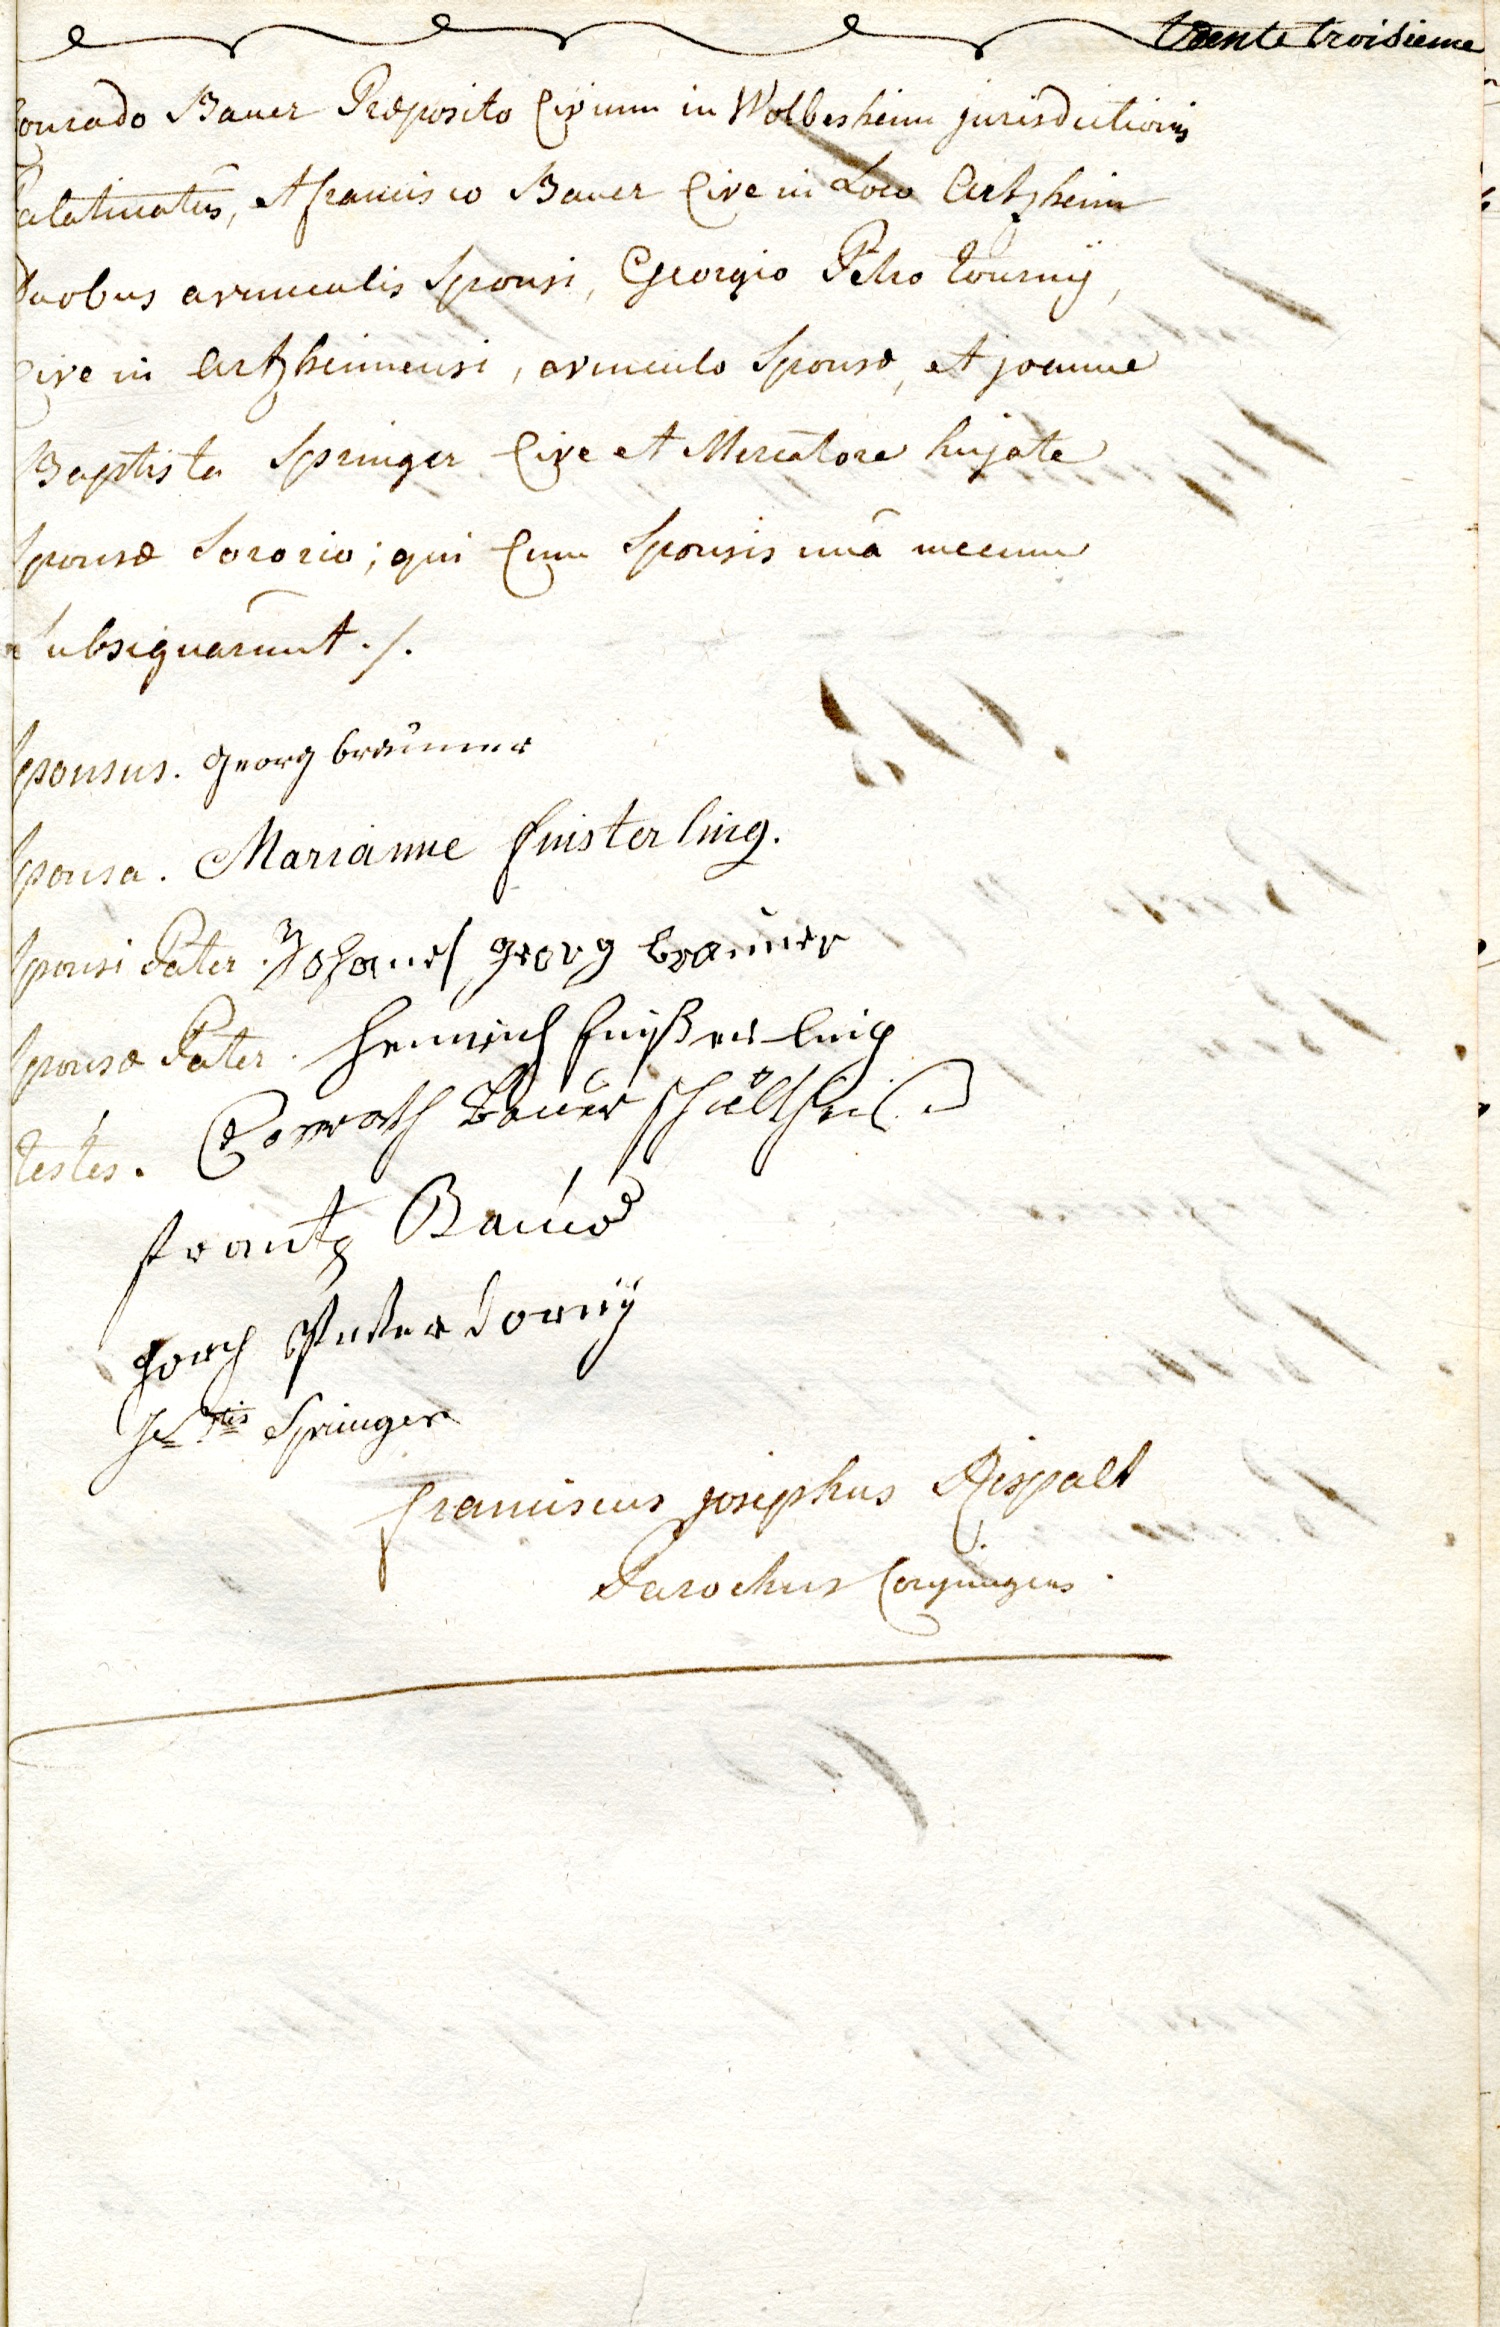 trente troisieme
Conrado Bauer Præposito Civium in Wolbesheim jurisdictionis
Palatinatûs, et francisco Bauer Cive in Loco Artzheim
Duobus avunculis Sponsi, Georgio Petro tournÿ,
Cive in Artzheimensi, avunculo Sponsæ, et joanne
Baptista Springer Cive et Mercatore hujate
Sponsæ Sororio; qui Cum Sponsis unâ mecum
Subsignarunt ./.
Sponsus. georg braüner
Sponsa. Marianne finsterling.
Sponsi Pater. Johanes georg braüner
Sponsæ Pater. Henrich finsterling
testes. Conrath Bauer schultheis
frantz Bauer
Gorch Petter dornÿ
Springer
franciscus josephus Rispalt
Parochus Conjungens.